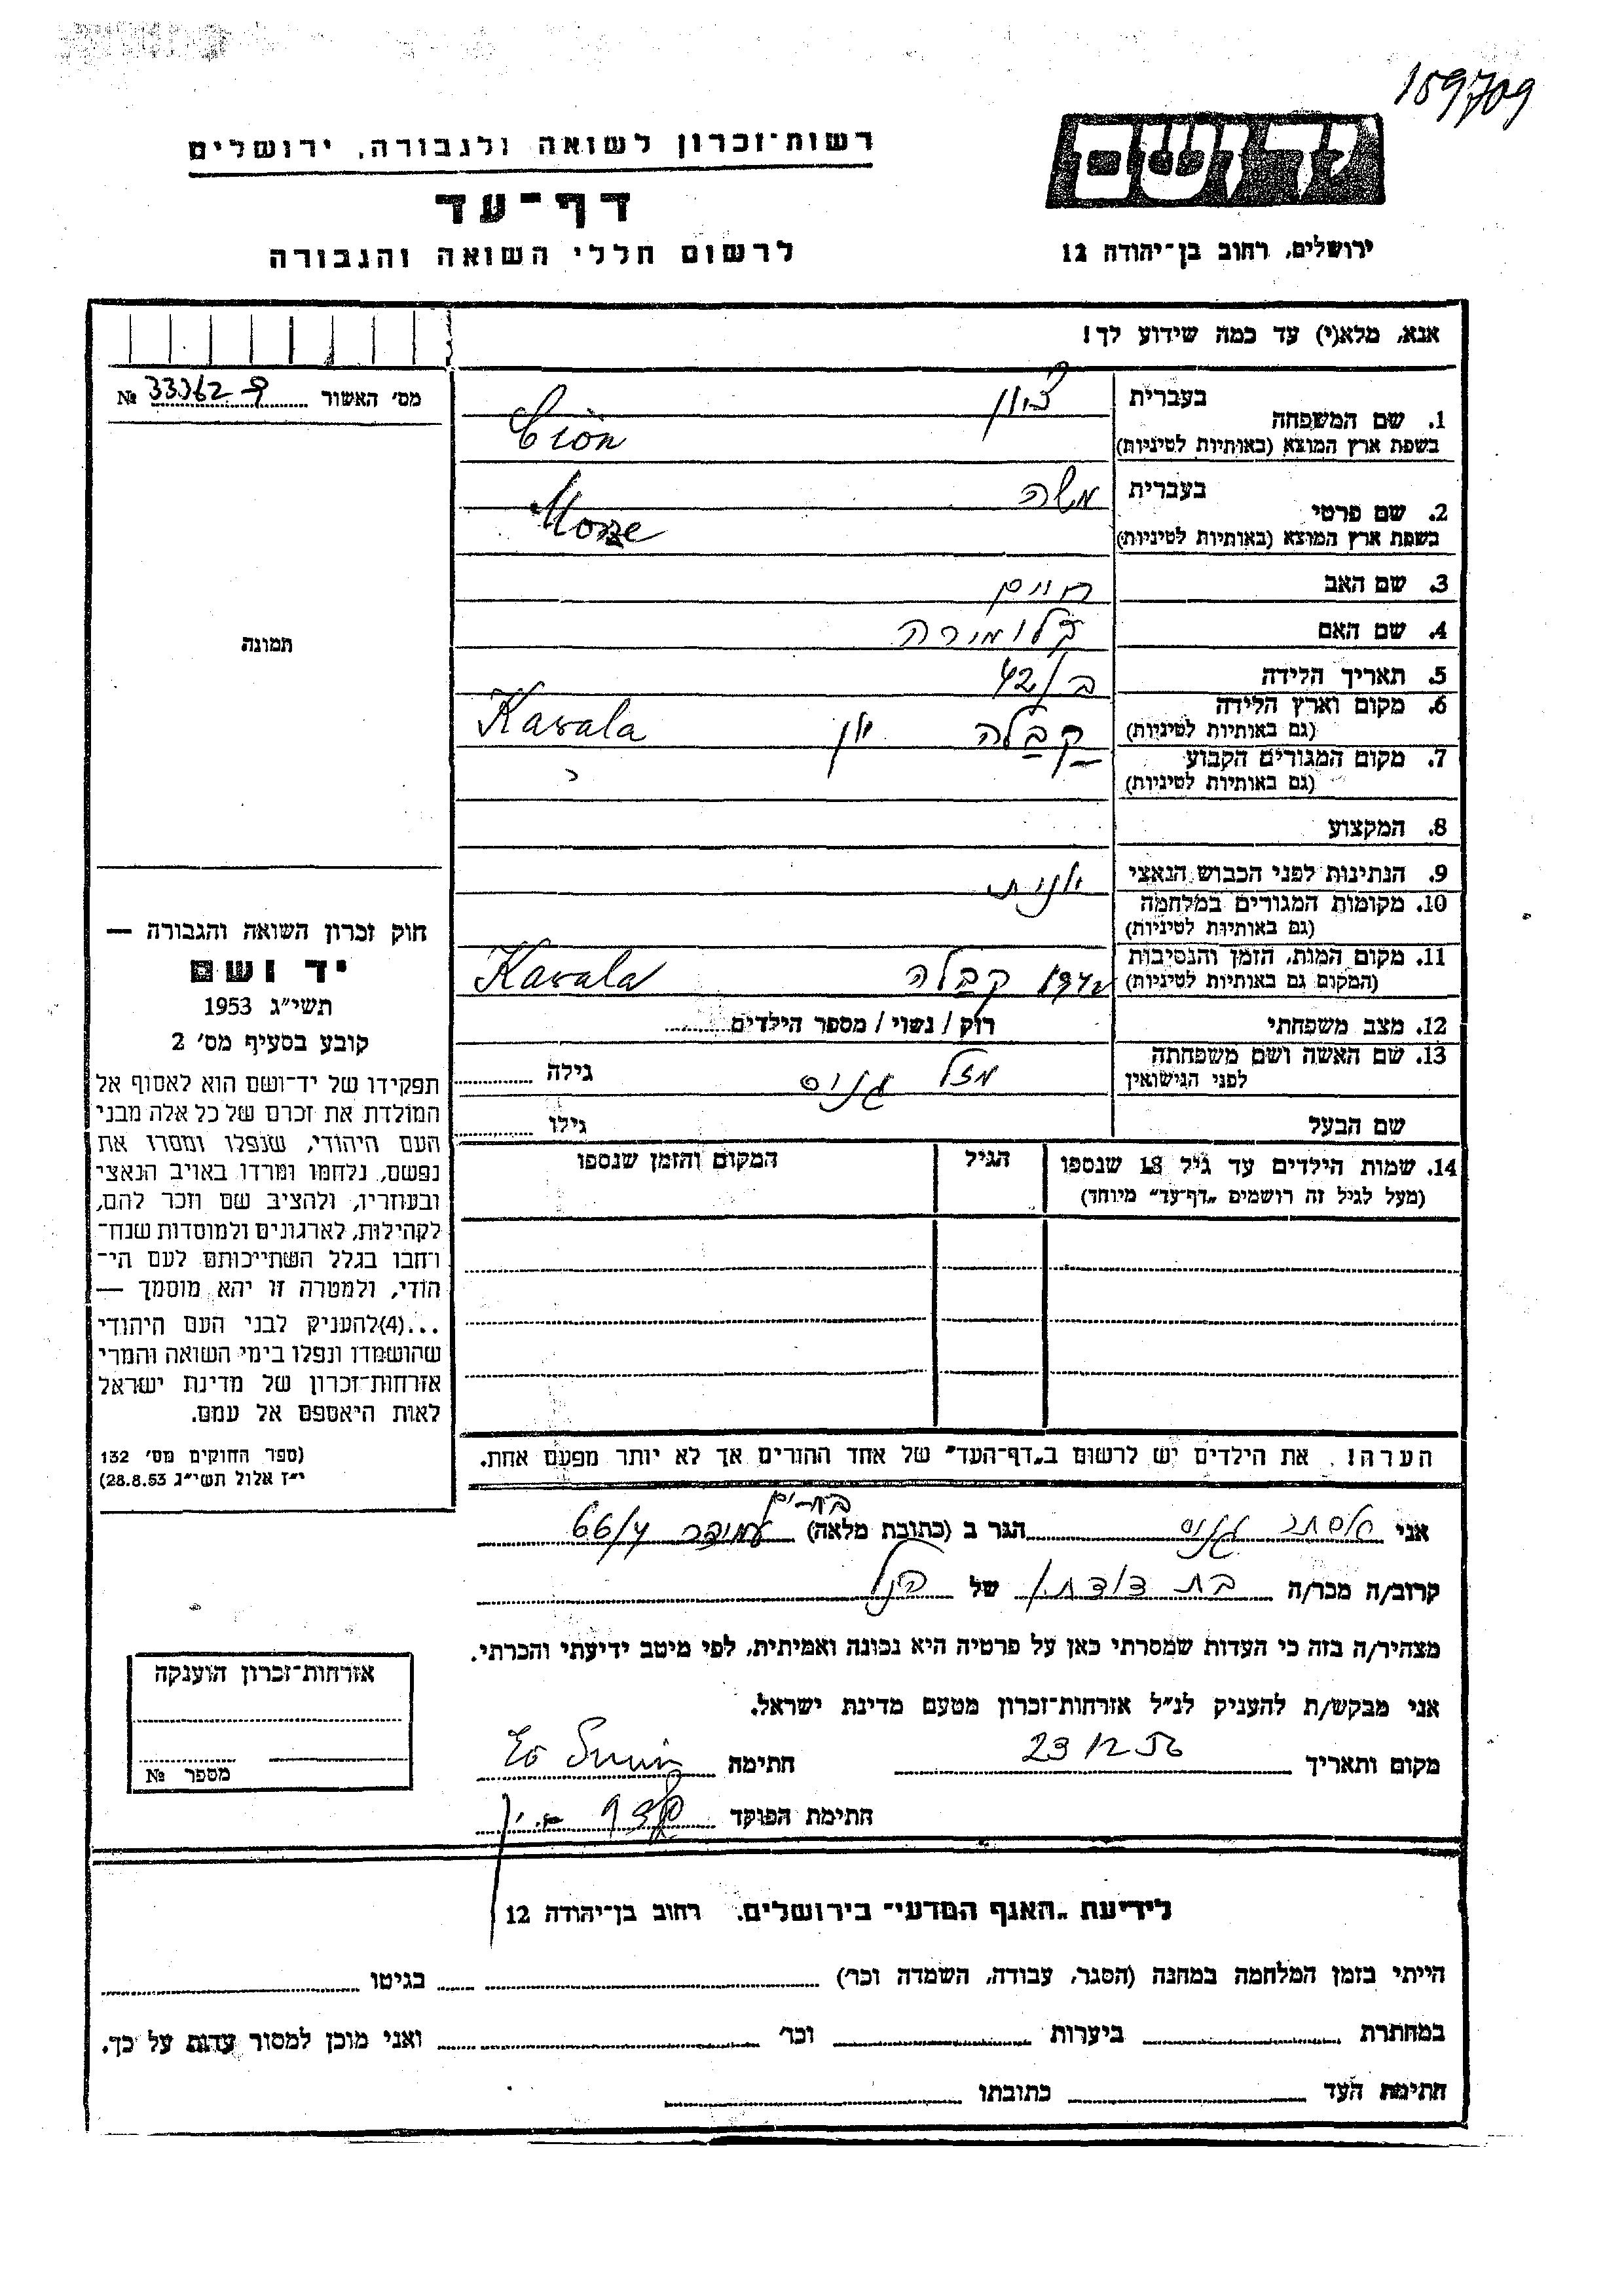 159709
רשות־זכרון לשואה ולגבורה, ירושלים
יד ושם
דף־עד
לרשום חללי השואה והגבורה
ירושלים, רחוב בן־יהודה 12
אנא, מלא(י) עד כמה שידוע לך!
מס' האשור № 33362
1. שם המשפחה בעברית ציון
בשפת ארץ המוצא (באותיות לטיניות) Cion
2. שם פרטי בעברית משה
בשפת ארץ המוצא (באותיות לטיניות)
3. שם האב חיים
4. שם האם
תמונה
5. תאריך הלידה
6. מקום וארץ הלידה (גם באותיות לטיניות) קבלה יון Kavala
7. מקום המגורים הקבוע (גם באותיות לטיניות)
8. המקצוע
9. הנתינות לפני הכבוש הנאצי יונית
10. מקומות המגורים במלחמה (גם באותיות לטיניות)
11. מקום המות, הזמן והנסיבות (המקום גם באותיות לטיניות) קבלה Kavala
12. מצב משפחתי רוק / נשוי / מספר הילדים
13. שם האשה ושם משפחתה לפני הנישואין מזל גילה
שם הבעל גילו
14. שמות הילדים עד גיל 18 שנספו
(מעל לגיל זה רושמים „דף־עד" מיוחד)
הגיל
המקום והזמן שנספו
חוק זכרון השואה והגבורה —
יד ושם
תשי"ג 1953
קובע בסעיף מס' 2
תפקידו של יד־ושם הוא לאסוף אל
המולדת את זכרם של כל אלה מבני
העם היהודי, שנפלו ומסרו את
נפשם, נלחמו ומרדו באויב הנאצי
ובעוזריו, ולהציב שם וזכר להם,
לקהילות, לארגונים ולמוסדות שנח־
רחבו בגלל השתייכותם לעם הי־
הודי, ולמטרה זו יהא מוסמך —
...(4)להעניק לבני העם היהודי
שהושמדו ונפלו בימי השואה והמרי
אזרחות־זכרון של מדינת ישראל
לאות היאספם אל עמם.
(ספר החוקים מס' 132
י"ז אלול תשי"ג 28.8.53)
הערה! את הילדים יש לרשום ב„דף־העד" של אחד ההורים אך לא יותר מפעם אחת.
אני אסתר הגר ב (כתובת מלאה) 66/4
קרוב/ה מכר/ה בת דודתו של הנ"ל
מצהיר/ה בזה כי העדות שמסרתי כאן על פרטיה היא נכונה ואמיתית, לפי מיטב ידיעתי והכרתי.
אני מבקש/ת להעניק לנ"ל אזרחות־זכרון מטעם מדינת ישראל.
מקום ותאריך 23 12 56 חתימה
חתימת הפוקד
אזרחות־זכרון הוענקה
מספר №
לידיעת „האגף המדעי" בירושלים, רחוב בן־יהודה 12
הייתי בזמן המלחמה במחנה (הסגר, עבודה, השמדה וכו') בגיטו
במחתרת ביערות וכו' ואני מוכן למסור עדות על כך.
חתימת העד כתובתו